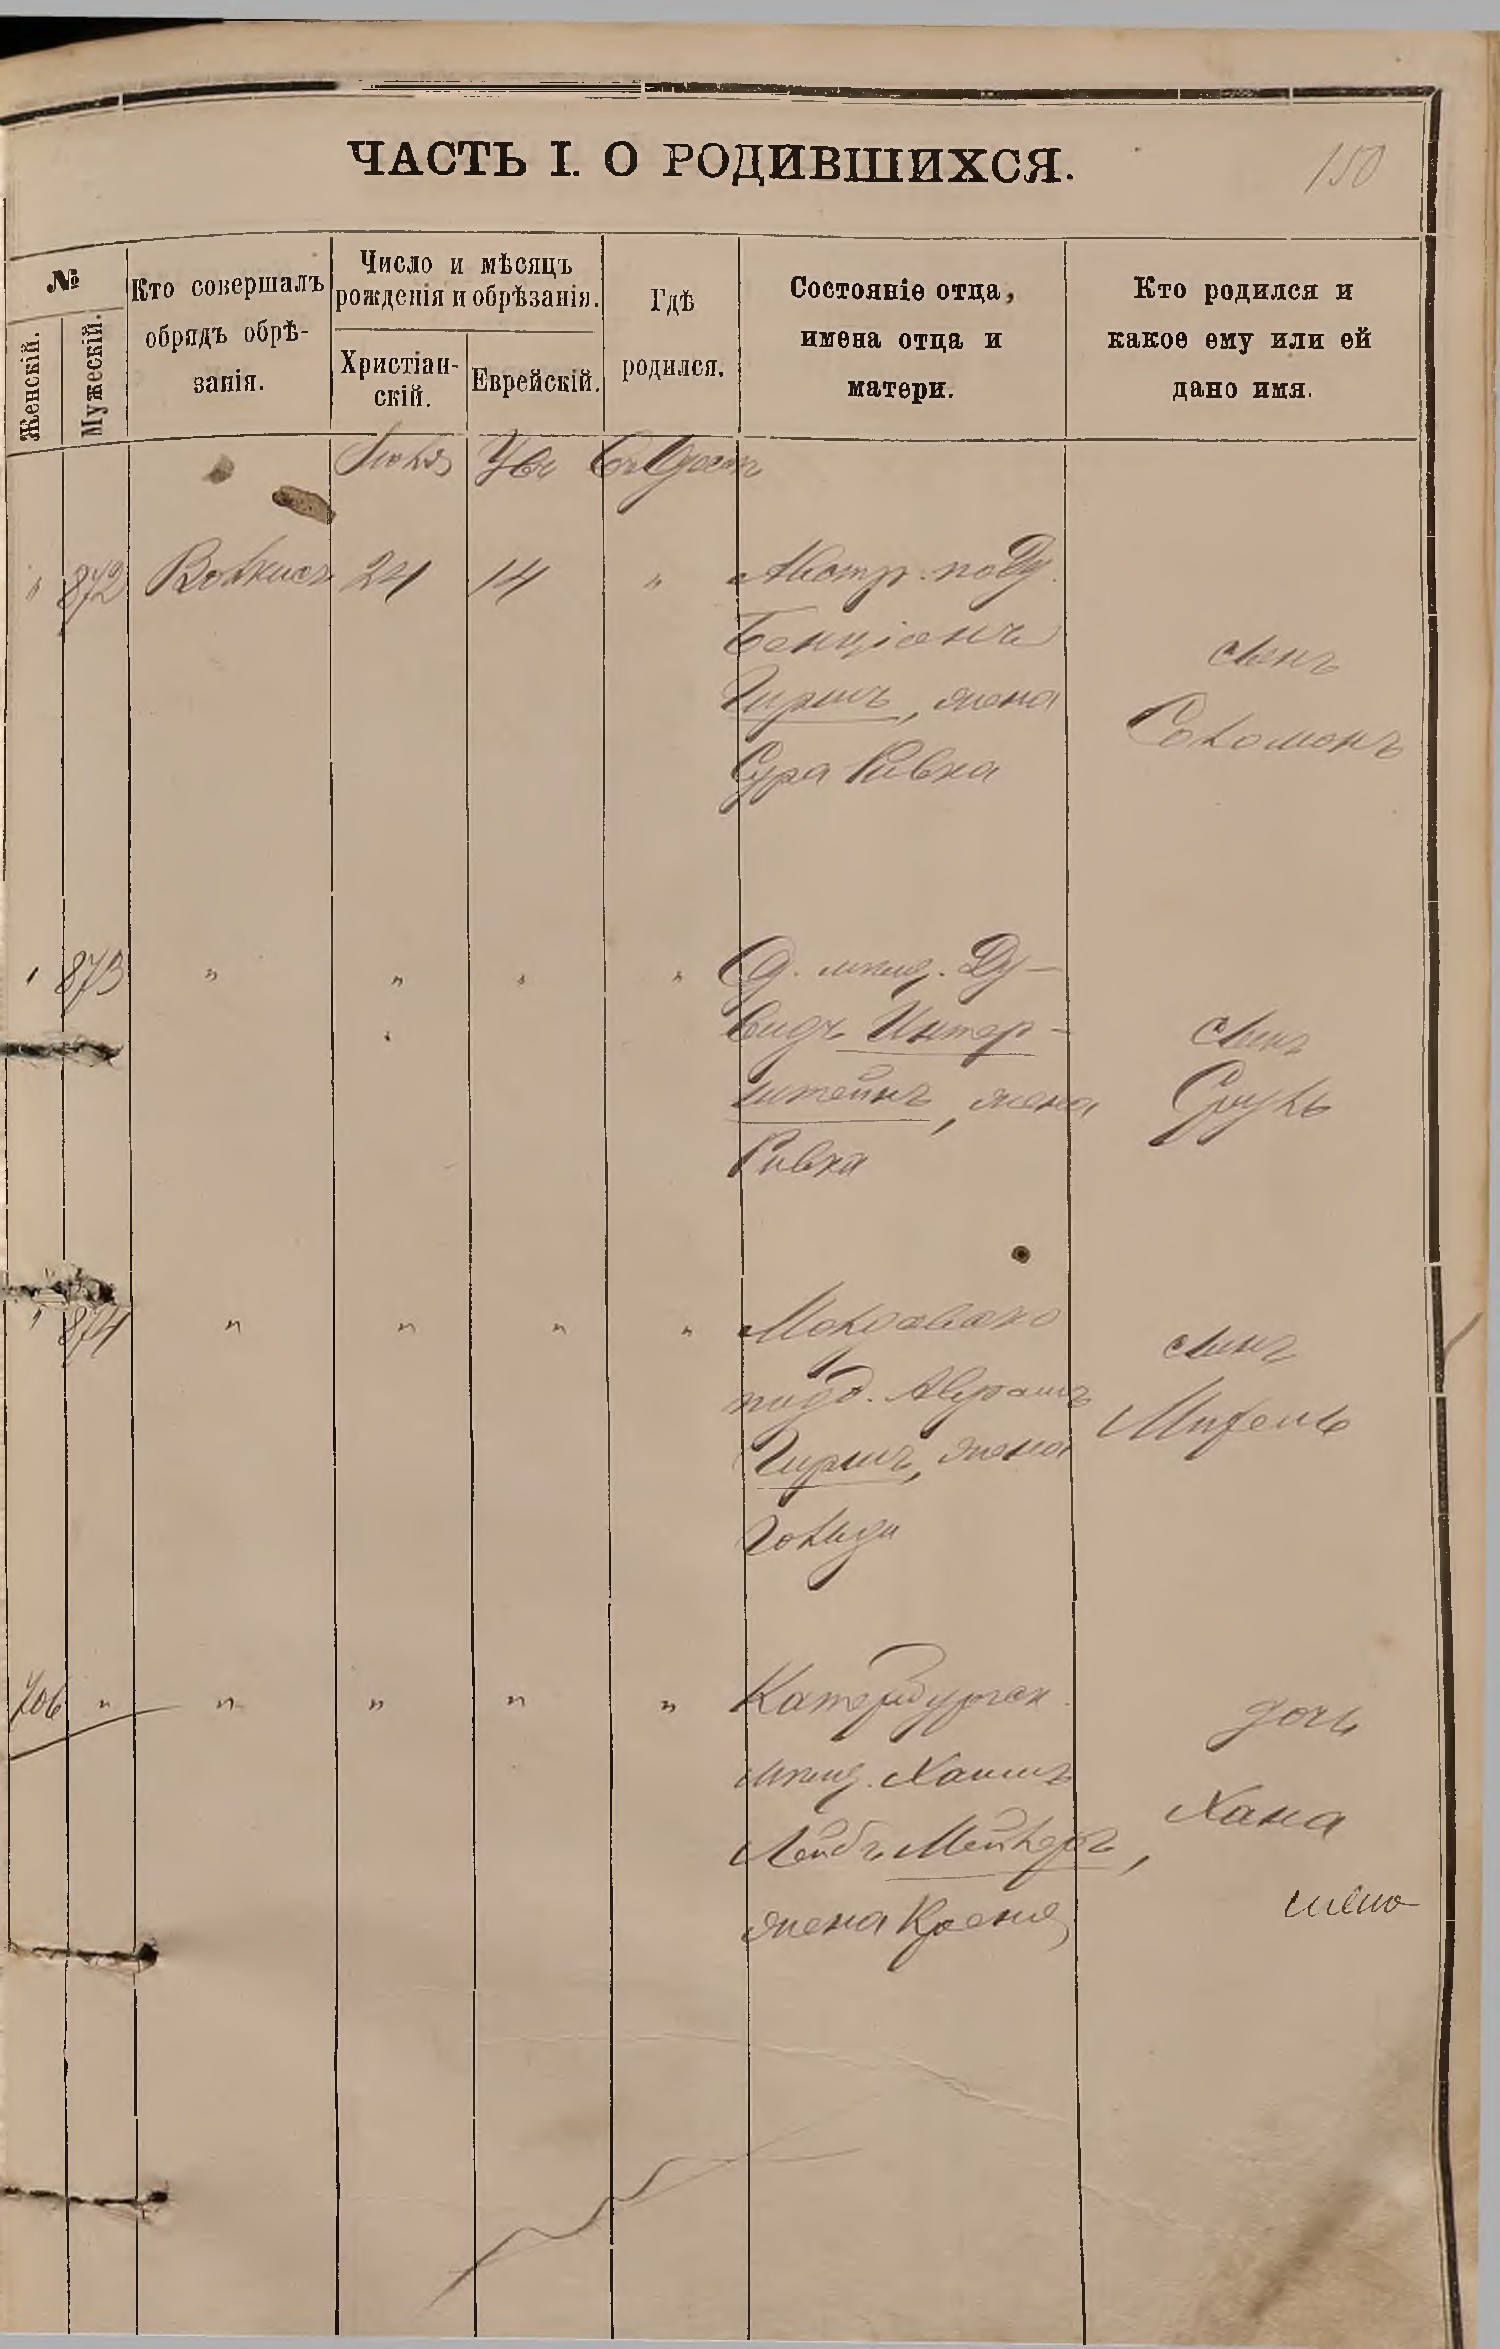 ЧАСТЬ I. О РОДИВШИХСЯ.
150
№
Женскій.
Мужескій.
Кто совершалъ
обрядъ обрѣ-
занія.
Число и мѣсяцъ
рожденія и обрѣзанія.
Христіан-
скій.
Еврейскій.
Гдѣ
родился.
Состояніе отца,
имена отца и
матери.
Кто родился и
какое ему или ей
дано имя.
Іюля
Въ Одессѣ
" 872 24 14 "
Австр. подд.
Бенціонъ
Гиршъ, жена
Сура Ривка
сынъ
Соломонъ
" 873 " " " "
О. мѣщ. Ду-
видъ Интер-
штейнъ, жена
Ривка
сынъ
Сруль
" 874 " " " "
подд. Абрамъ
Гиршъ, жена
Гольда
сынъ
Михель
706 " " " " "
Катербургск.
мѣщ. Хаимъ
Лейбъ Мейлеръ,
жена Креня
дочь
Хана